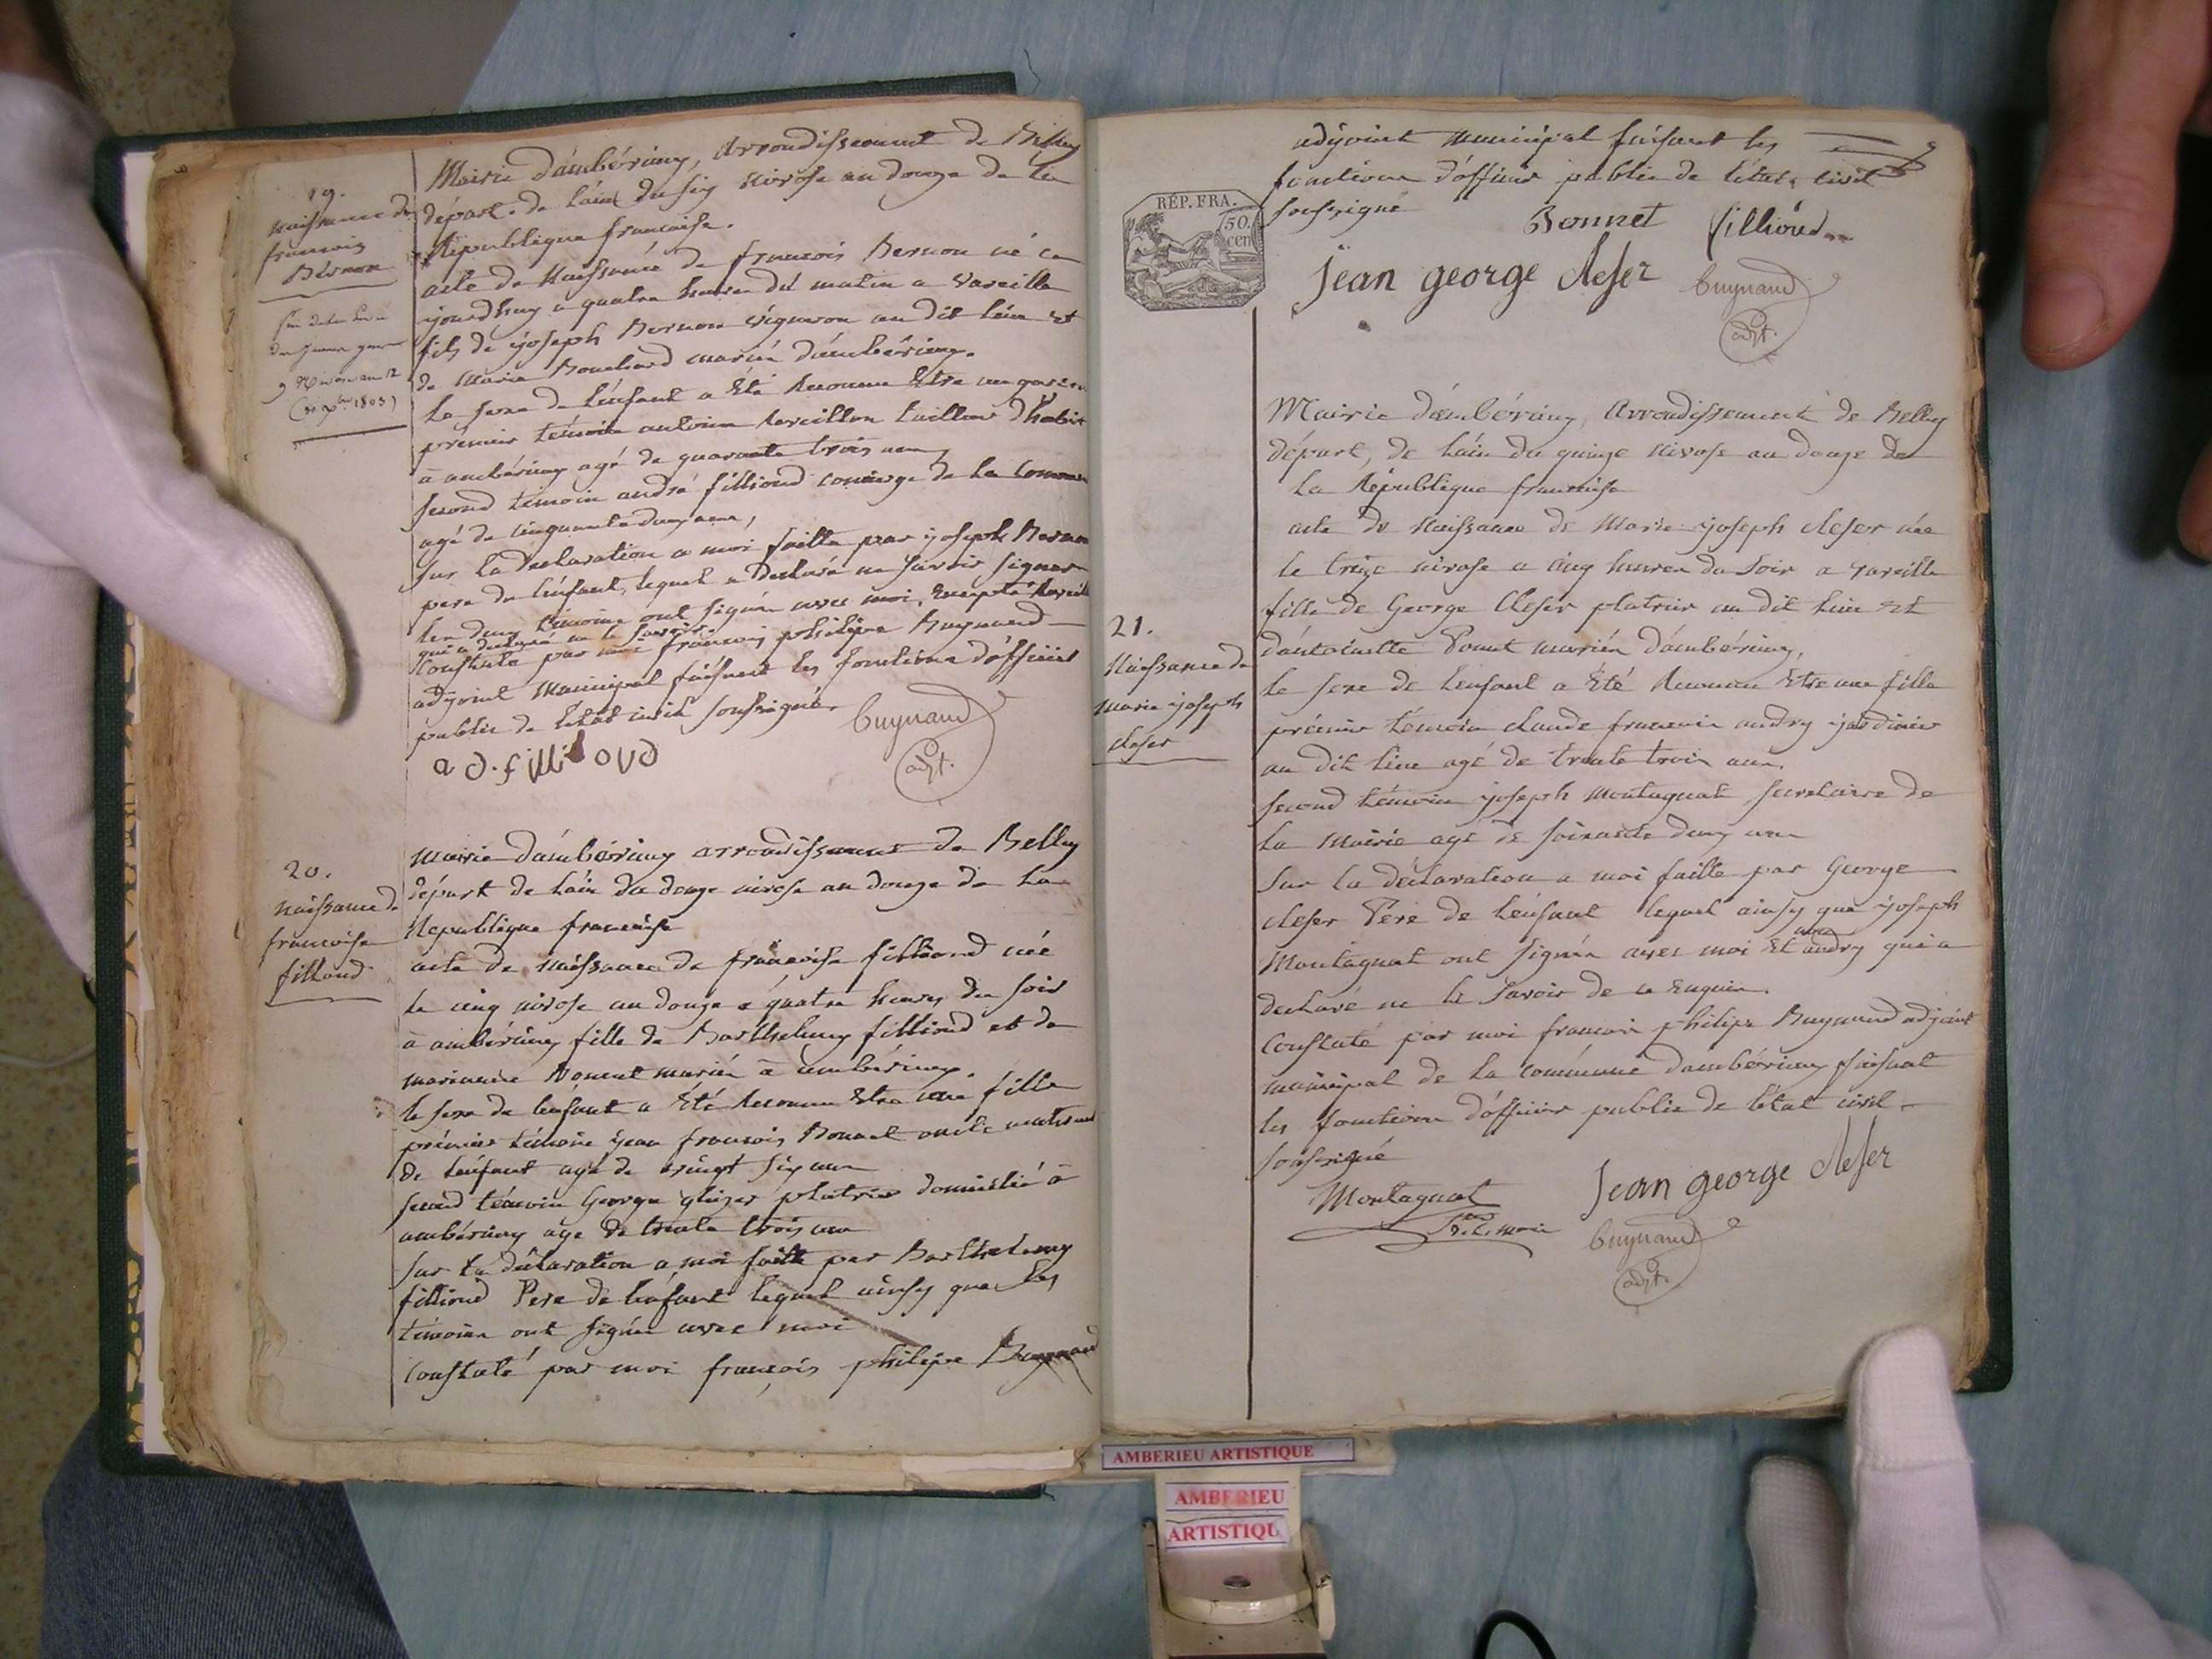 19.
Naissance de
francois
Bernon
9 Nivose an 12
Mairie d'ambérieux, arrondissement de Belley
départ. de l'ain du six nivose an douze de la
République francaise.
acte de Naissance de francois Bernon né ce
jourdhuy a quatre heures du matin a Vareille
fils de joseph Bernon vigneron au dit lieu et
de Marie Bouchard mariés d'ambérieux.
Le sexe de l'enfant a été Reconnu Etre un garcon
prémier témoin antoine Reveillon tailleur d'habit
a ambérieux agé de quarante trois ans
second témoin andré fillioud concierge de la Commune
agé de cinquante deux ans,
Sur la declaration a moi faitte par joseph Bernon
pere de l'enfant, lequel a Declaré ne savoir signer
les deux témoins ont signés avec moi, Excepté Reveillon
qui a declaré ne le savoir.
Constaté par moi francois philipe Buynand
adjoint Municipal faisant les fonctions d'officier
public de l'état civil soussigné.
Buynand
adjt.
a d. fillioud
20.
Naissance de
francoise
filloud
Mairie d'ambérieux arrondissement de Belley
départ de l'ain du douze nivose an douze de la
République francaise
acte de naissance de francoise fillioud née
le cinq nivose an douze a quatre heures du soir
à ambérieux fille de Barthelemy fillioud et de
marianne Bonnet mariés à ambérieux.
le sexe de l'enfant a été Reconnu Etre une fille
prémier témoin jean francois Bonnet oncle maternel
de l'enfant agé de vingt six ans
second témoin George platrier domicilié à
ambérieux age de trente trois ans
Sur la déclaration a moi faitte par Barthelemy
fillioud Pere de l'enfant lequel ainsy que les
témoins ont signés avec moi
Constaté par moi françois philipe Buynand
adjoint municipal faisant les
fonctions d'officier public de l'état civil
soussigné
Bonnet fillioud
jean george cleser
Buynand
adjt.
RÉP. FRA.
50.
cen
21.
Naissance de
marie joseph
cleser
Mairie d'ambérieux, Arrondissement de Belley
départ, de l'ain du quinze nivose an douze de
la République francaise
acte de Naissance de Marie joseph cleser née
le treize nivose a cinq heures du soir a vareille
fille de George Cleser platrier au dit lieu et
d'antoinette Ponet mariés d'ambérieux,
le sexe de l'enfant a été Reconnu Etre une fille
prémier témoin claude francois andry jardinier
au dit lieu agé de trente trois ans.
second témoin joseph montagnat secretaire de
la mairie agé de soixante deux ans
Sur la déclaration a moi faitte par George
cleser Pere de l'enfant lequel ainsy que joseph
Montagnat ont signés avec moi Et non andry qui a
declaré ne le savoir de ce Enquis.
Constaté par moi francois philipe Buynand adjoint
municipal de la commune d'ambérieux faisant
les fonctions d'officier public de l'état civil
soussigné
Montagnat Jean george cleser
Buynand
adjt.
AMBERIEU ARTISTIQUE
AMBERIEU
ARTISTIQU